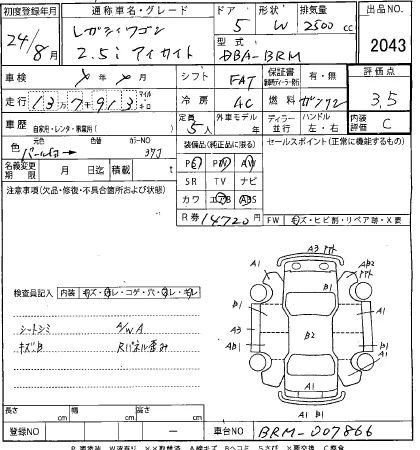 初度登録年月 通称車名・グレード ドア 形状 排気量 出品NO
24/8月 レガシィワゴン 5 W 2500cc
2.5i アイサイト 型式 DBA-BRM 2043
車検 メ年メ月 シフト FAT 保証書 有・無 評価点
走行 13万7913 マイル キロ 冷房 AC 燃料 ガソリン 3.5
車歴 自家用・レンタ・事業用( ) 定員 5人 外車モデル 年 ディーラー 並行 ハンドル 左・右 内装評価 C
色 パール白 元色 色替 カラーNO 37J 装備品(純正品に限る) セールスポイント(正常に機能するもの)
PS PW AW
名義変更期限 月 日迄 積載 t SR TV ナビ
注意事項(欠品・修復・不具合箇所および現状) カワ エアB ABS
R券 14720円 FW キズ・ヒビ割・リペア跡・X要
検査員記入 内装 キズ・汚レ・コゲ・穴・スレ・キレ
シートシミ A/W A
キズ・凹 Rパネル歪み
A3
A1 AB2
B1 A1
A3 B2 B1
AB1 A1
A1 B1 A1
A1
長さ cm 幅 cm 高さ cm
登録NO ー 車台NO BRM-007866
P.要塗装 W.波有り XX.交換済 A.線キズ B.ヘコミ S.サビ X.要交換 C.腐食